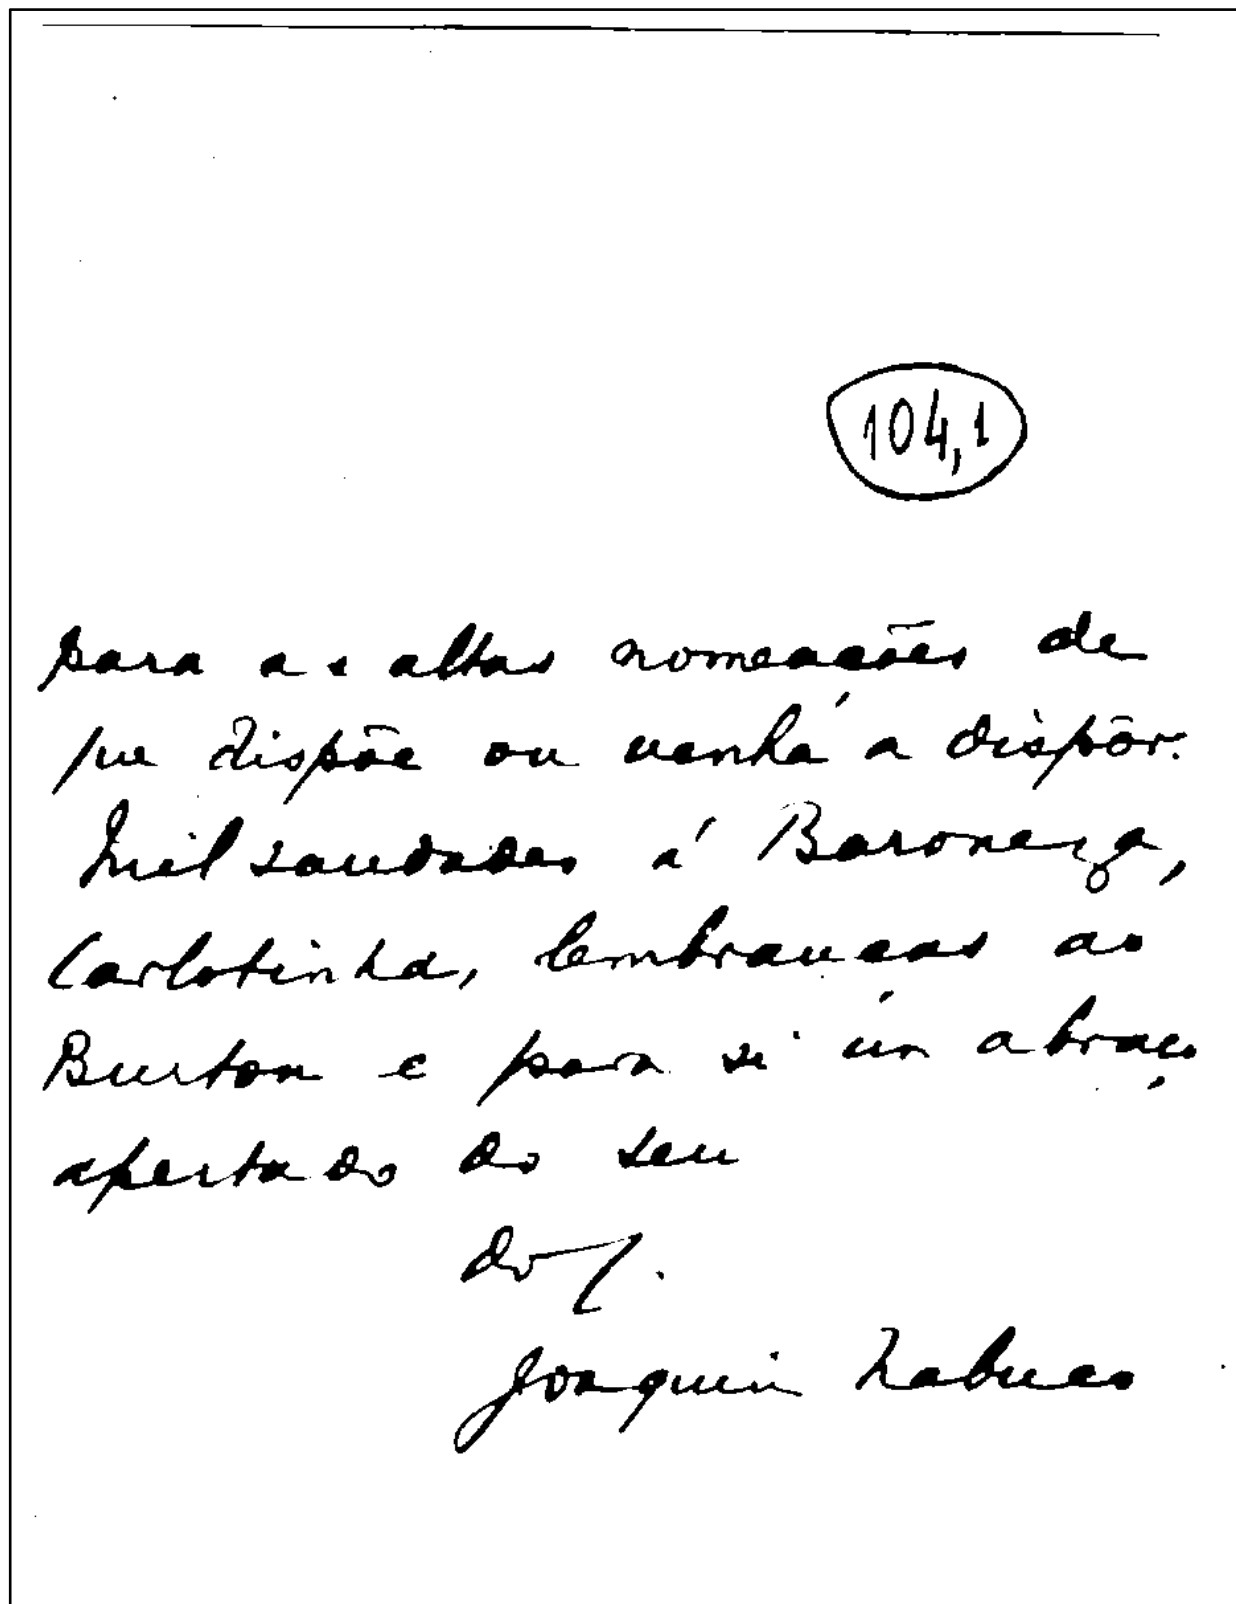 104,1
para as altas nomeações de
que dispõe ou venha a dispôr.
Mil saudades á Baroneza,
Carlotinha, lembranças ao
Burton e para si um abraço
apertado do seu
Joaquim Nabuco